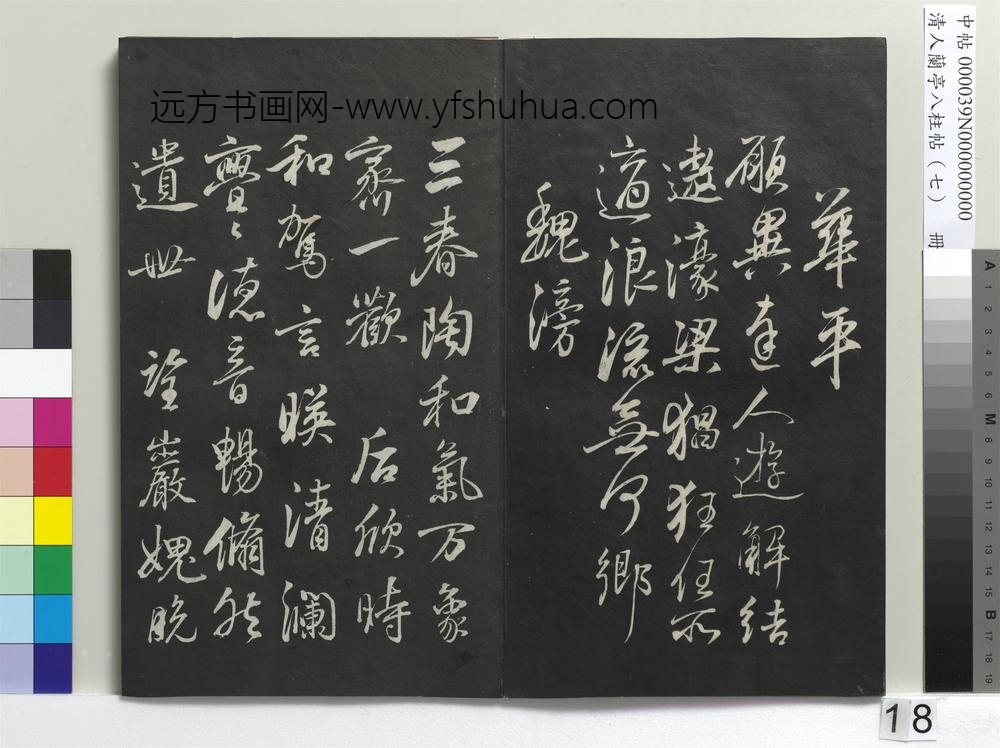 远方书画网-www.yfshuhua.com
中帖 000039N000000000
清人蘭亭八柱帖（七） 冊
華平
願與達人遊解結
遨濠梁猖狂任所
適浪流無何鄉
魏滂
三春陶和氣万象
齊一歡 后欣時
和駕言暎清瀾
亹〻德音暢脩然
遺世 詮巖媿脫
A 1 2 3 4 5 6 M 8 9 10 11 12 13 14 15 B 17 18 19
18